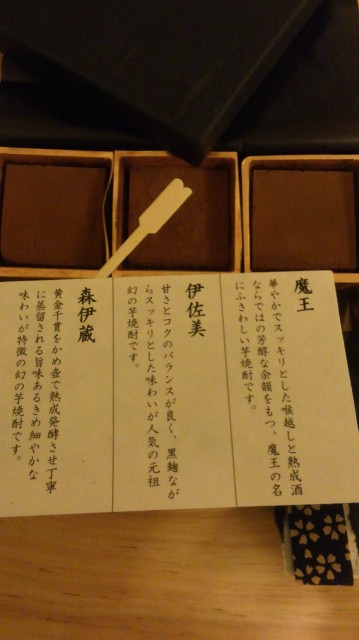 魔王
華やかでスッキリとした喉越しと熟成酒
ならではの芳醇な余韻をもつ、魔王の名
にふさわしい芋焼酎です。
伊佐美
甘さとコクのバランスが良く、黒麹なが
らスッキリとした味わいが人気の元祖
幻の芋焼酎です。
森伊蔵
黄金千貫をかめ壺で熟成発酵させ丁寧
に蒸留される旨味あるきめ細やかな
味わいが特徴の幻の芋焼酎です。